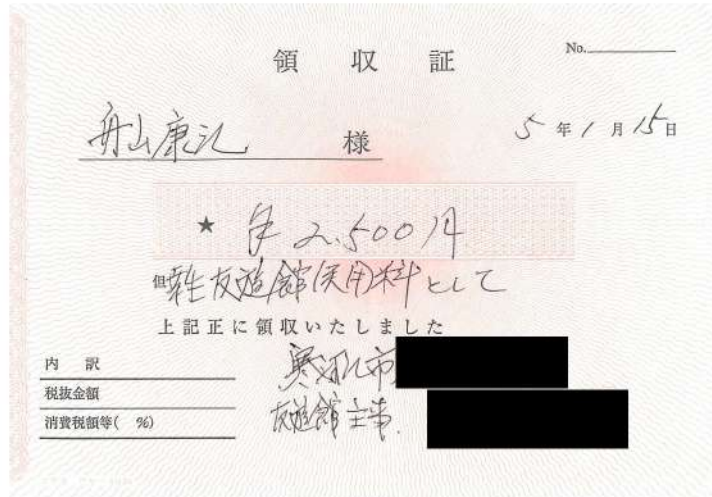 領収証
No.
舟山康江 様
5年1月15日
★ 金 2,500円
但 友遊館使用料として
上記正に領収いたしました
内訳
税抜金額
消費税額等( %)
寒河江市
友遊館主事